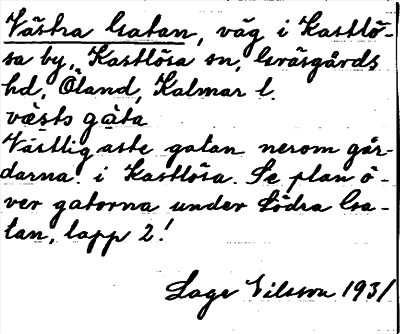 Västra Gatan, väg i Kastlö-
sa by, Kastlösa sn, Gräsgårds
hd, Öland, Kalmar l.
væsts gata
Västligaste gatan nerom går-
darna i Kastlösa. Se plan ö-
ver gatorna under Södra Ga-
tan, lapp 2!
Lage Nilsson 1931